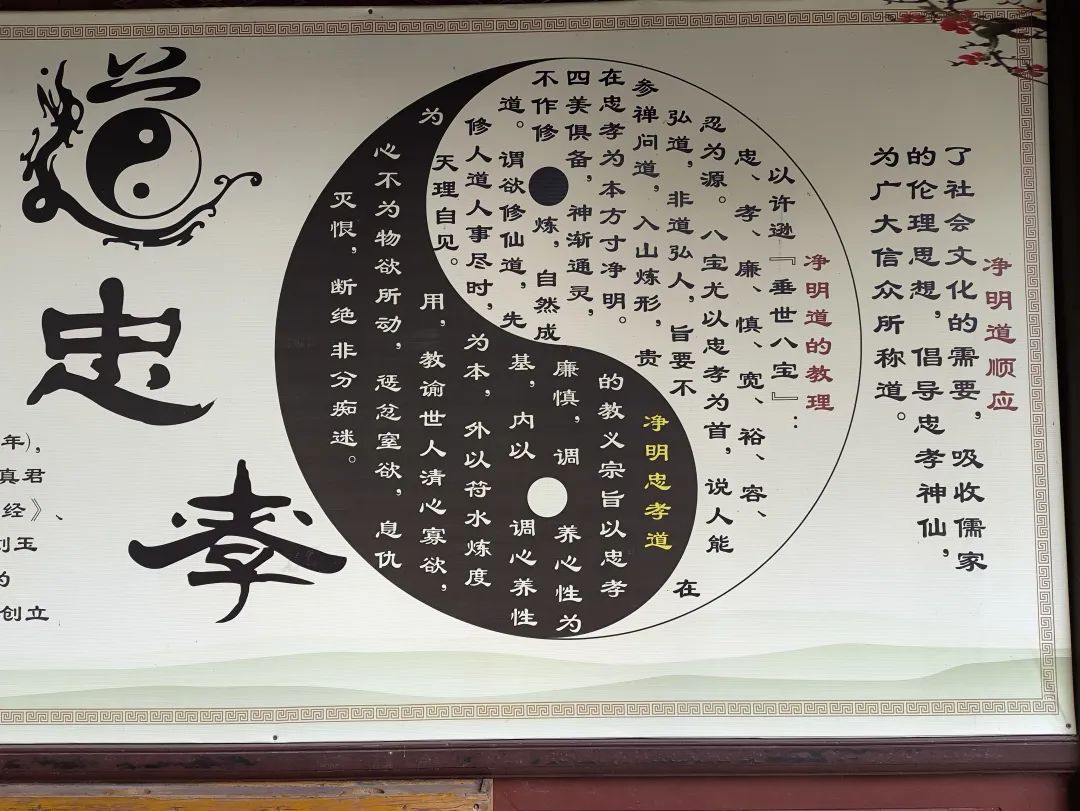 净明道顺应
了社会文化的需要，吸收儒家
的伦理思想，倡导忠孝神仙，
为广大信众所称道。
净明道的教理
以许逊『垂世八宝』：
忠、孝、廉、慎、宽、裕、容、
忍为源。八宝尤以忠孝为首，说人能
弘道，非道弘人，旨要不在
参禅问道，入山炼形，贵
在忠孝为本方寸净明。
四美俱备，神渐通灵，
不作修炼，自然成
道。谓欲修仙道，先
修人道人事尽时，
天理自见。
净明忠孝道
的教义宗旨以忠孝
廉慎，调养心性为
基，内以调心养性
为本，外以符水炼度
为用，教谕世人清心寡欲，
心不为物欲所动，惩忿窒欲，息仇
灭恨，断绝非分痴迷。
道
忠
孝
年），
真君
经》、
玉
创立